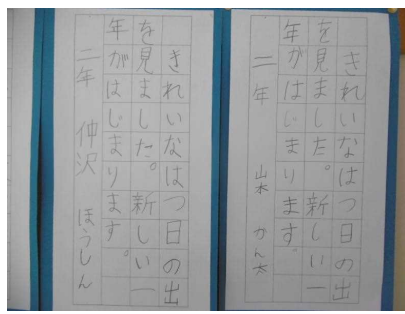 きれいなはつ日の出
を見ました。新しい一
年がはじまります。
二年 山本 かん太
きれいなはつ日の出
を見ました。新しい一
年がはじまります。
二年 仲沢 ほうしん